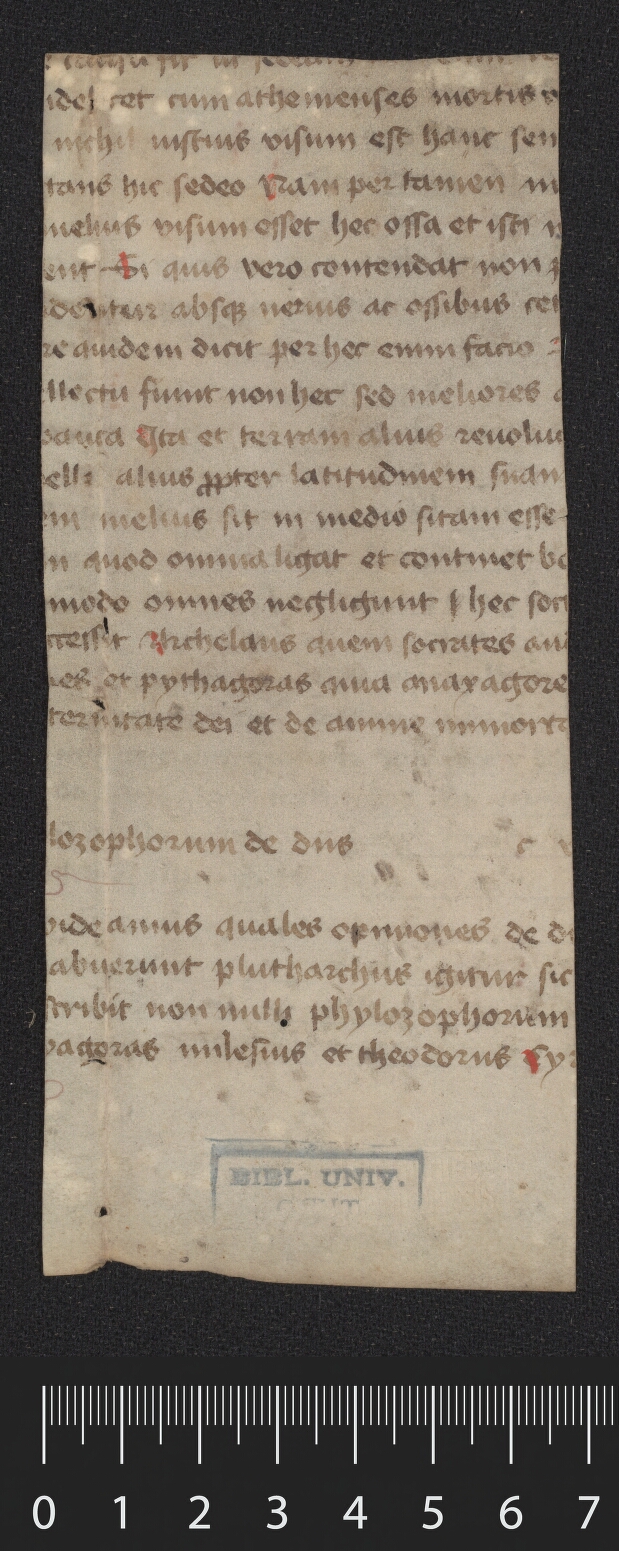 idel cet cum athenienses mortis
nichil iustius visum est hanc sen
tans hic sedeo Nam per tamen
melius visum esset hec ossa et isti
ent Si quis vero contendat non
dentur absq neruis ac ossibus cet
re quidem dicit per hec enim facio
llectu fiunt non hec sed meliores
pauca Ita et terram alius reuolu
alius ppter latitudinem suam
em melius sit in medio sitam esse
n quod omnia ligat et continet bo
modo omnes negligunt hec soc
cessit Archelaus quem socrates au
es et pythagoras quia anaxagore
ternitate dei et de anime immorta
lozophorum de diis c
videamus quales opiniones de di
abuerunt plutharchus igitur sic
scribit non nulli phylozophorum
agoras milesius et theodorus Cyr
BIBL. UNIV.
0 1 2 3 4 5 6 7